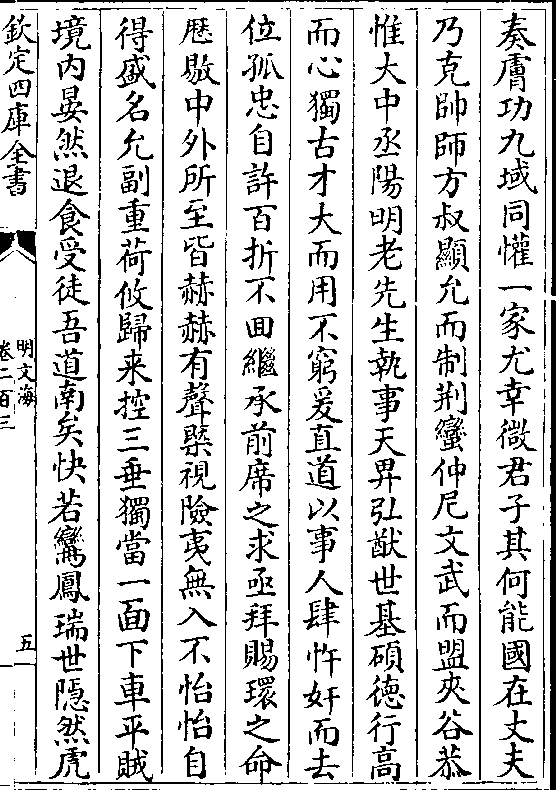 奏膚功九域同懽一家尤幸微君子其何能國在丈夫
乃克帥師方叔顯允而制荆蠻仲尼文武而盟夾谷恭
惟大中丞陽明老先生執事天畀弘猷世基碩徳行高
而心獨古才大而用不窮爰直道以事人肆忤奸而去
位孤忠自許百折不回繼承前席之求亟拜賜環之命
歴敭中外所至皆赫赫有聲槩視險夷無入不怡怡自
得盛名允副重荷攸歸来控三垂獨當一面下車平賊
境内晏然退食受徒吾道南矣快若鸞鳳瑞世隠然虎
欽定四庫全書
明文海
卷二百三
五